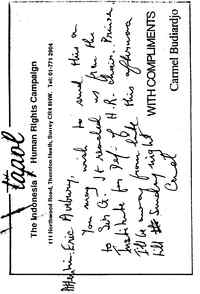 tapol
The Indonesia Human Rights Campaign
111 Northwood Road, Thornton Heath, Surrey CR4 8HW. Tel: 01-771 2904
Attention, Eric Avebury,
You may wish to send this on
to Sir G. It reached us from the
Institute for Def. of H.R.
I'll be away from late this afternoon
till Sunday night
Carmel
WITH COMPLIMENTS
Carmel Budiardjo